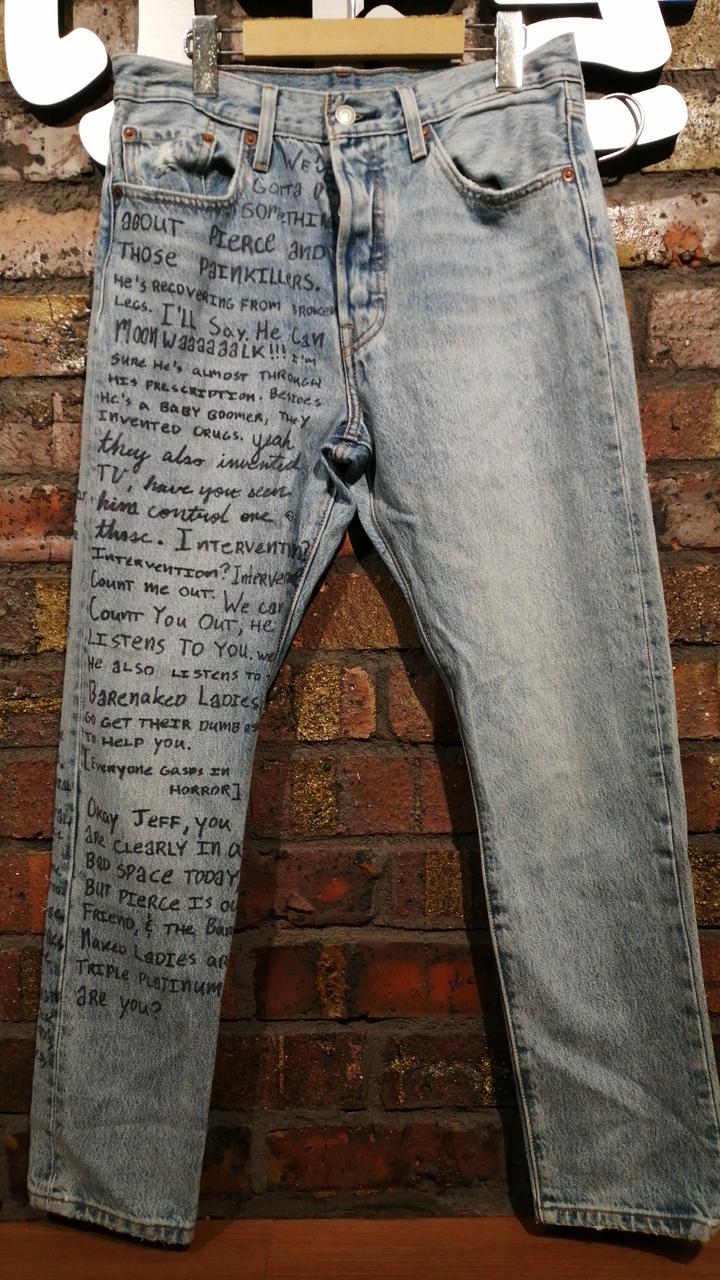 We'
Gotta D
SOMETHIN
about PIERCE and
THOSE PaINKILLERS.
He's RECOVERING FROM BROKEN
Legs. I'LL Say. He Can
MoonWaaaaaaLK!!! I'm
sure He's aLMOST THROUGH
HIS PRESCRIPTION. Besides
He's a BABY BOOMER, THEY
INVENTED DRUGS. yeah
they also invented
TV, have you seen
him control one o
those. InTervenTIn?
InTERVENTIOn? InTerven
Count me out. We can
Count You Out, He
LISTENS TO YOU. We
He aLSO LISTENS TO
Barenaked Ladies
GO GET THEIR DUMB as
TO HELP you.
[Everyone Gasps In
HORROR]
Okay Jeff, you
are cLearLY In a
BaD space TODAY
BUT PIERCE IS ou
FrIenD, & THE Bar
Naked LaDIES ar
TRIPLE PLaTInUM
are you?